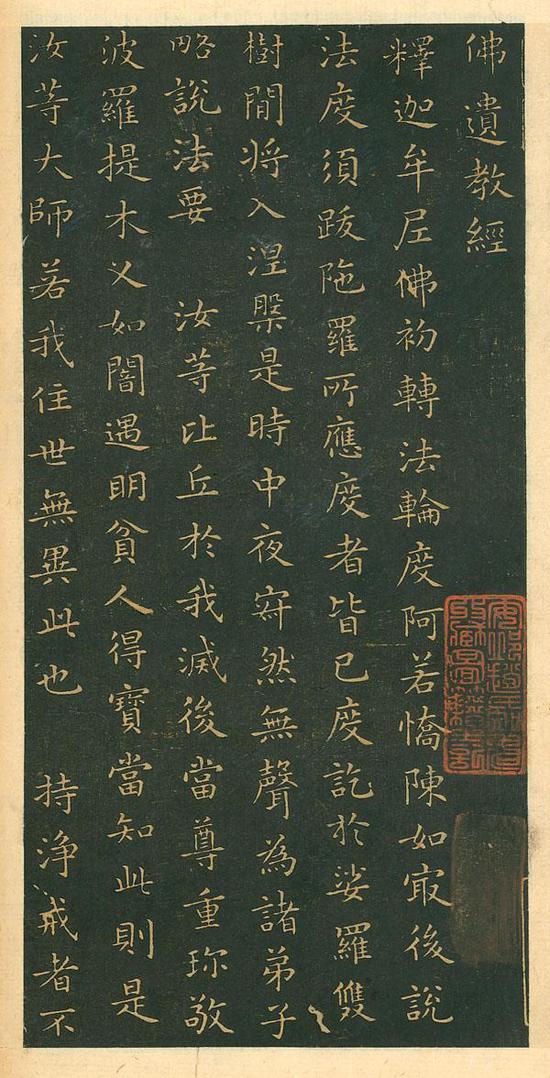 佛遺教經
釋迦牟尼佛初轉法輪度阿若憍陳如㝡後說
法度須跋陁羅所應度者皆已度訖於娑羅雙
樹間将入涅槃是時中夜寂然無聲為諸弟子
略說法要 汝等比丘於我滅後當尊重珎敬
波羅提木乂如闇遇明貧人得寶當知此則是
汝等大師若我住世無異此也 持淨戒者不